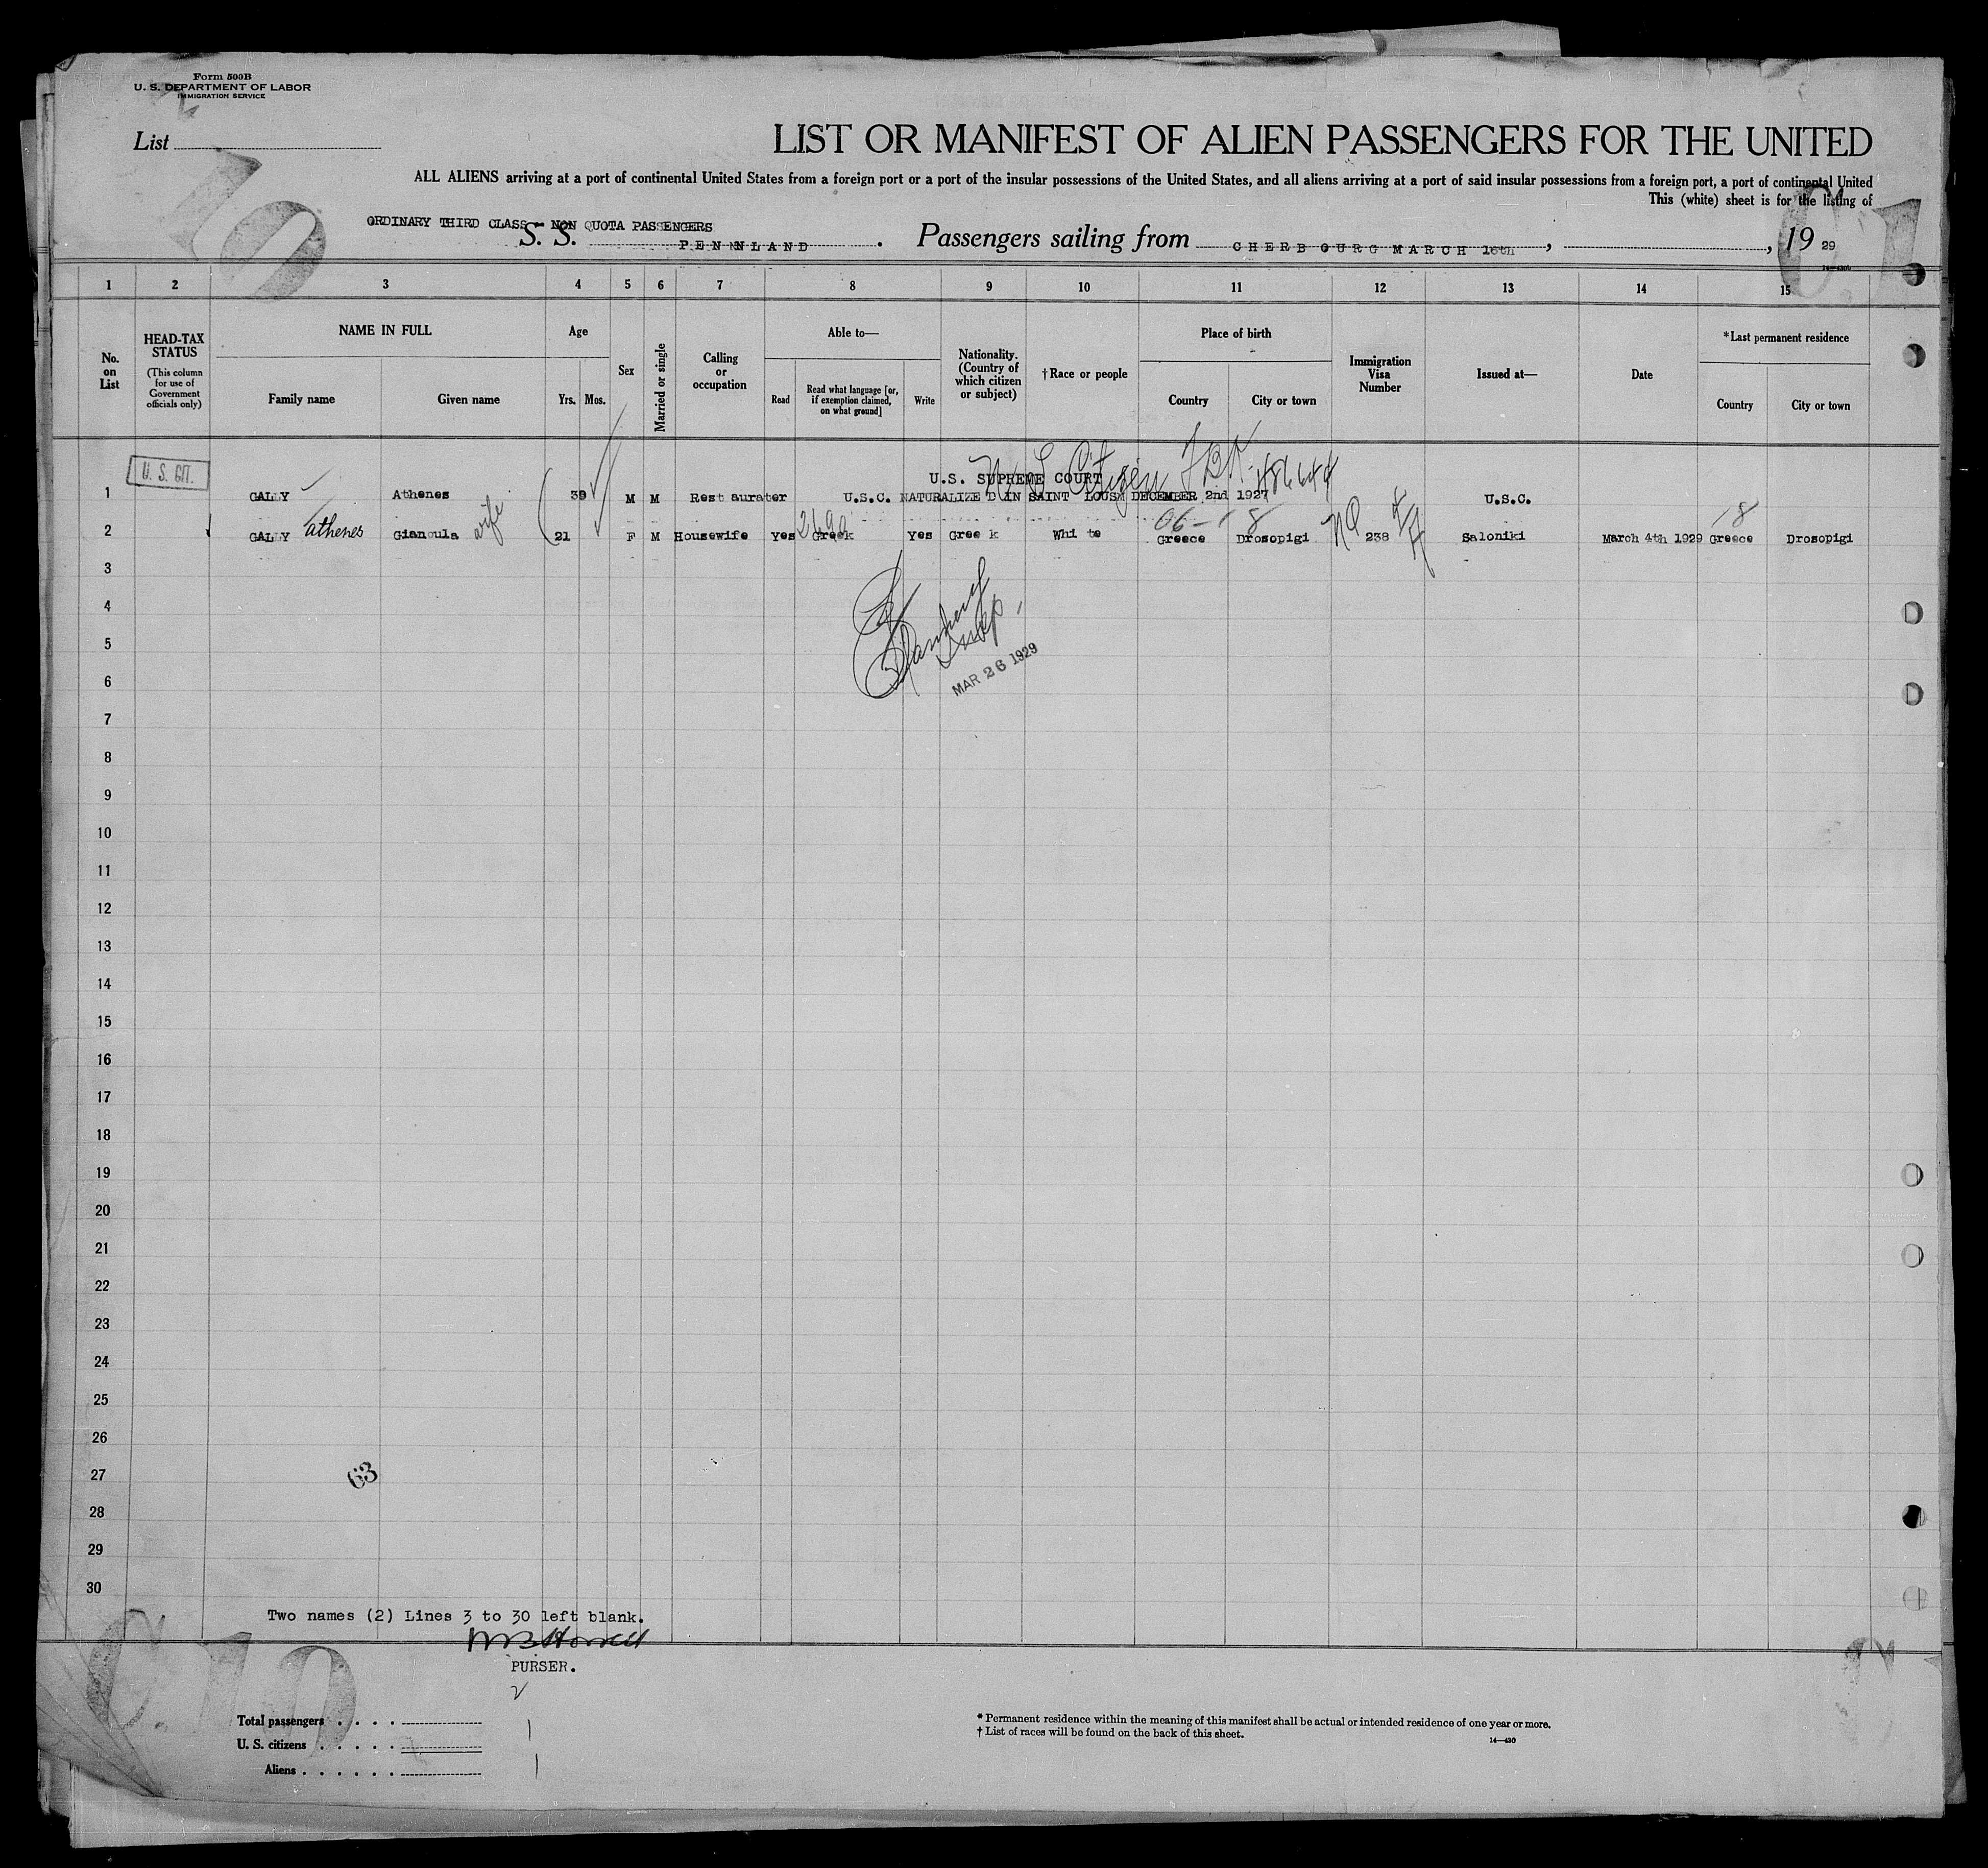 Form 500B
U. S. DEPARTMENT OF LABOR
IMMIGRATION SERVICE
List
LIST OR MANIFEST OF ALIEN PASSENGERS FOR THE UNITED
ALL ALIENS arriving at a port of continental United States from a foreign port or a port of the insular possessions of the United States, and all aliens arriving at a port of said insular possessions from a foreign port, a port of continental United
This (white) sheet is for the listing of
10
ORDINARY THIRD CLASS - NON QUOTA PASSENGERS
S. S. PENNLAND . Passengers sailing from CHERBOURG MARCH 16th , , 19 29
1 2 3 4 5 6 7 8 9 10 11 12 13 14 15
No. on List
HEAD-TAX STATUS
(This column for use of Government officials only)
NAME IN FULL
Family name Given name
Age
Yrs. Mos.
Sex
Married or single
Calling or occupation
Able to—
Read
Read what language [or, if exemption claimed, on what ground]
Write
Nationality. (Country of which citizen or subject)
†Race or people
Place of birth
Country City or town
Immigration Visa Number
Issued at—
Date
*Last permanent residence
Country City or town
U. S. CIT.
U.S. SUPREME COURT
1 GALLY Athenes 39 M M Restaurater U.S.C. NATURALIZE'D IN SAINT LOUS DECEMBER 2nd 1927 U.S.C.
06-18 18
2 GALLY athenes Gianoula wife 21 F M Housewife Yes Greek Yes Greek White Greece Drosopigi NQ 238 Saloniki March 4th 1929 Greece Drosopigi
3
4
5
6
MAR 26 1929
7
8
9
10
11
12
13
14
15
16
17
18
19
20
21
22
23
24
25
26
27
63
28
29
30
Two names (2) Lines 3 to 30 left blank.
PURSER.
C. 10
2
Total passengers . . . .
U. S. citizens . . . . . 1
Aliens . . . . . . 1
* Permanent residence within the meaning of this manifest shall be actual or intended residence of one year or more.
† List of races will be found on the back of this sheet.
14—430